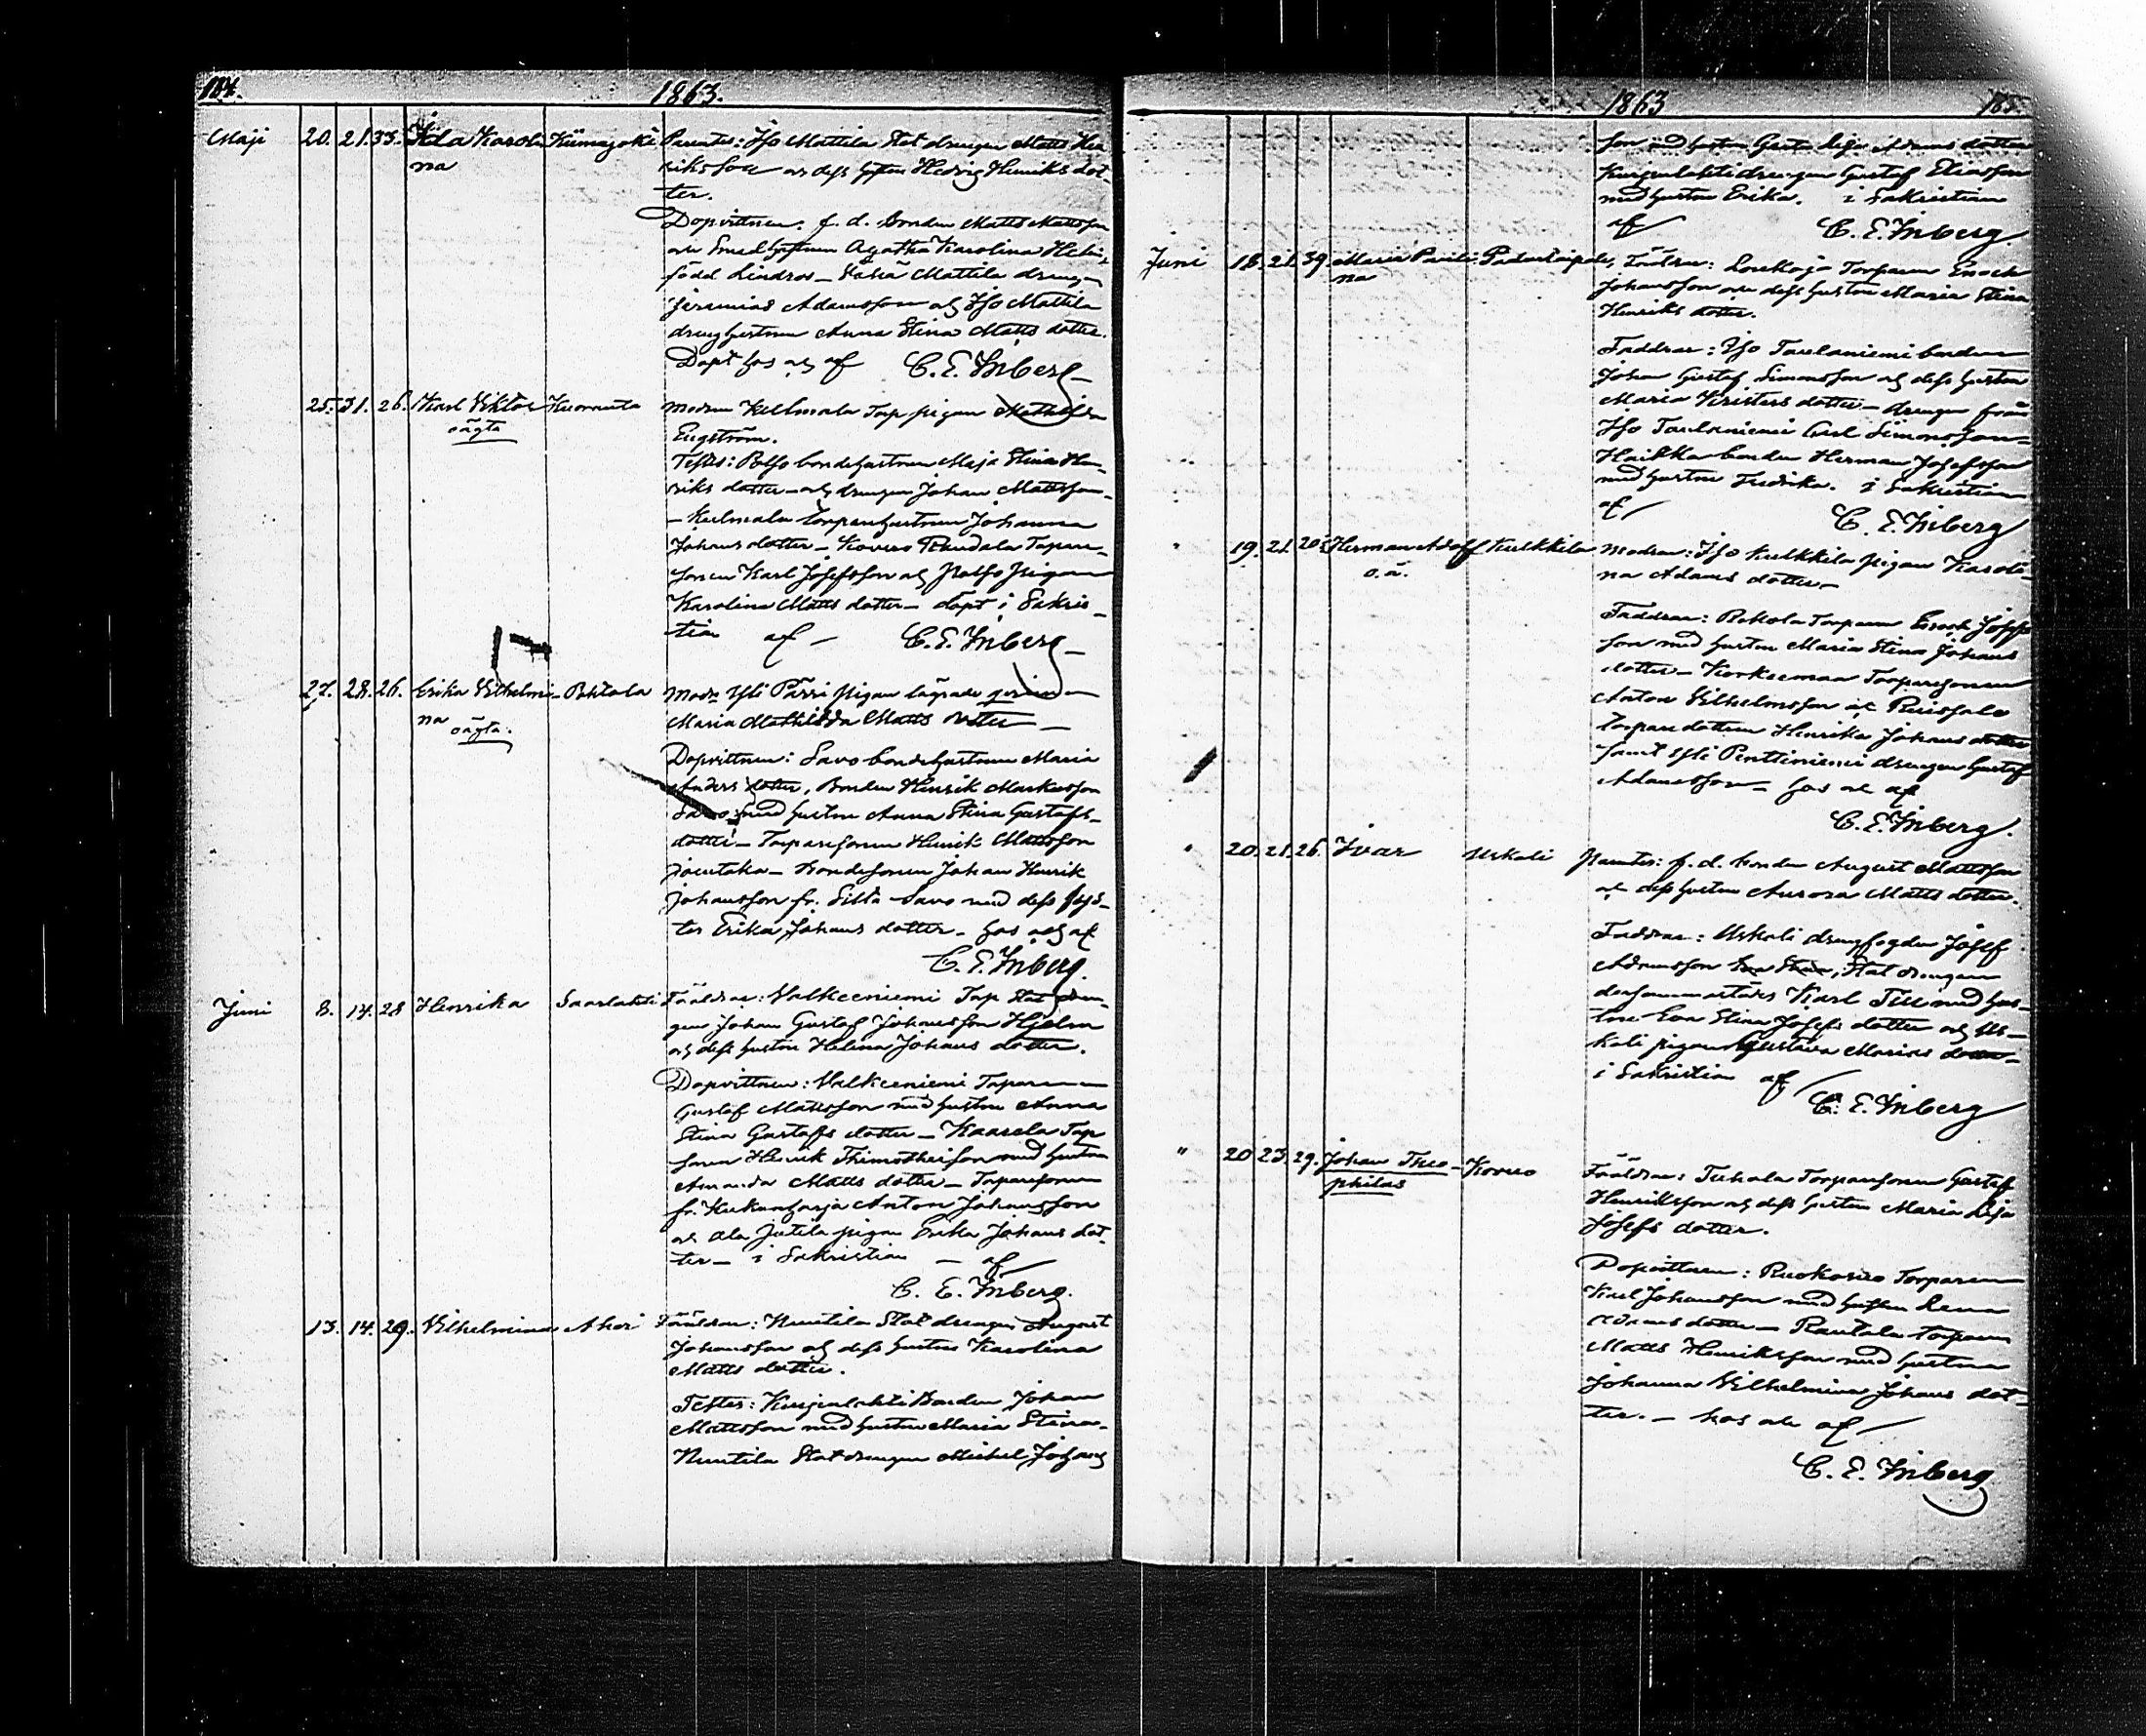 184.
1863.
Maji 20. 21. 33. Ida Karoli Kiimajoki Parentes: Iso Mattila Stat drengen Matts Hen
na riksson och dess hustru Hedvig Henriks dot-
ter.
Dopvittnen: f. d. Bonden Matts Mattsson
Agatha Karolina
född Lindros – Vähä Mattila dreng
Jeremias Adamsson och Iso Mattila
dreng hustrun Anna Stina Matts dotter.
Döpt hos och af C. E. Inberg
25. 31. 26. Karl Viktor Modren Kulmala Torp pigan Mathilda
oägta Engström.
Testes: bondehustrun Maja Stina Hen-
riks dotter – och drengen Johan Mattsson
– Kulmala torparehustrun Johanna
Johans dotter – Kovero Torpare-
sonen Karl Josefsson och pigan
Karolina Matts dotter – döpt i Sakris-
tian af – C. E. Inberg
27. 28. 26. Erika Vilhelmi- Pohtola Modr. Yli Pärri pigan
na Maria Mathilda Matts dotter –
oägta.
Dopvittnen: Savo bondehustrun Maria
Anders dotter, Bonden Henrik Markusson
Savo med hustru Anna Stina Gustafs-
dotter – Torparesonen Henrik Mattsson
Jouutaka – bondesonen Johan Henrik
Johansson fr. Silta Savo med dess sys-
ter Erika Johans dotter – hos och af
C. E. Inberg.
Juni 8. 14. 28 Henrika Saarlahti Föräldrar: Valkeeniemi Torp Stat dren-
gen Johan Gustaf Johansson Hjelm
och dess hustru Helena Johans dotter.
Dopvittnen: Valkeeniemi Torparen
Gustaf Mattsson med hustru Anna
Stina Gustafs dotter – Kaarela Torp
sonen Henrik Thimotheison med hustru
Amanda Matts dotter – Torparesonen
fr. Kukonharja Anton Johansson
och Ala Jutila pigan Erika Johans dot-
ter – i Sakristian – af
C. E. Inberg.
13. 14. 29. Vilhelmina Ahoi Föräldrar: Nuutila Stat drengen August
Johansson och dess hustru Karolina
Matts dotter.
Testes: Kurjenlahti Bonden Johan
Mattsson med hustru Maria Stina –
Nuutila Stat drengen Michel Johans
1863 185.
son med hustru Greta Lisa Adams dotter
Kurjenlahti drengen Gustaf Eliasson
med hustru Erika. i Sakristian
af C. E. Inberg.
Juni 18. 21. 39. Maria Pauli- Föräldrar: Torparen Enoch
na Johansson och dess hustru Maria Stina
Henriks dotter.
Faddrar: Iso Taulaniemi bonden
Johan Gustaf Simonsson och dess hustru
Maria Kristers dotter – drengen från
Iso Taulaniemi Carl Simonsson –
Haikka bonden Herman Josefsson
med hustru Fredrika. i Sakristian
af C. E. Inberg
" 19. 21. 20½ Herman Adolf Kulkkila Modren: Iso Kulkkila pigan Karoli-
o.ä. na Adams dotter –
Faddrar: Torparen Enoch
son med hustru Maria Stina Johans
dotter – Korkeemaa Torparesonen
Anton Vilhelmsson och Ruissalo
torparedottren Henrika Johans dotter
samt Yli Penttiniemi drengen Gustaf
Adamsson – hos och af
C. E. Inberg.
" 20. 21. 26. Ivar Uskali Parentes: f. d. bonden August Mattsson
och dess hustru Aurora Matts dotter.
Faddrar: Uskali drengfogden Josef
Adamsson Eva Stina, Stat drengen
dersammastädes Karl med hus-
tru Eva Stina Josefs dotter och Us-
kali pigan Gustava Marias dotter
i Sakristian af
C. E. Inberg
" 20 23. 29. Johan Theo- Kovero Föräldrar: Tuhola Torparesonen Gustaf
philus Henriksson och dess hustru Maria Lisa
Josefs dotter.
Dopvittnen: Torparen
Karl Johansson med hustru Lena
Adams dotter – Rautala torparen
Matts Henriksson med hustrun
Johanna Vilhelmina Johans dot-
ter. – hos och af –
C. E. Inberg